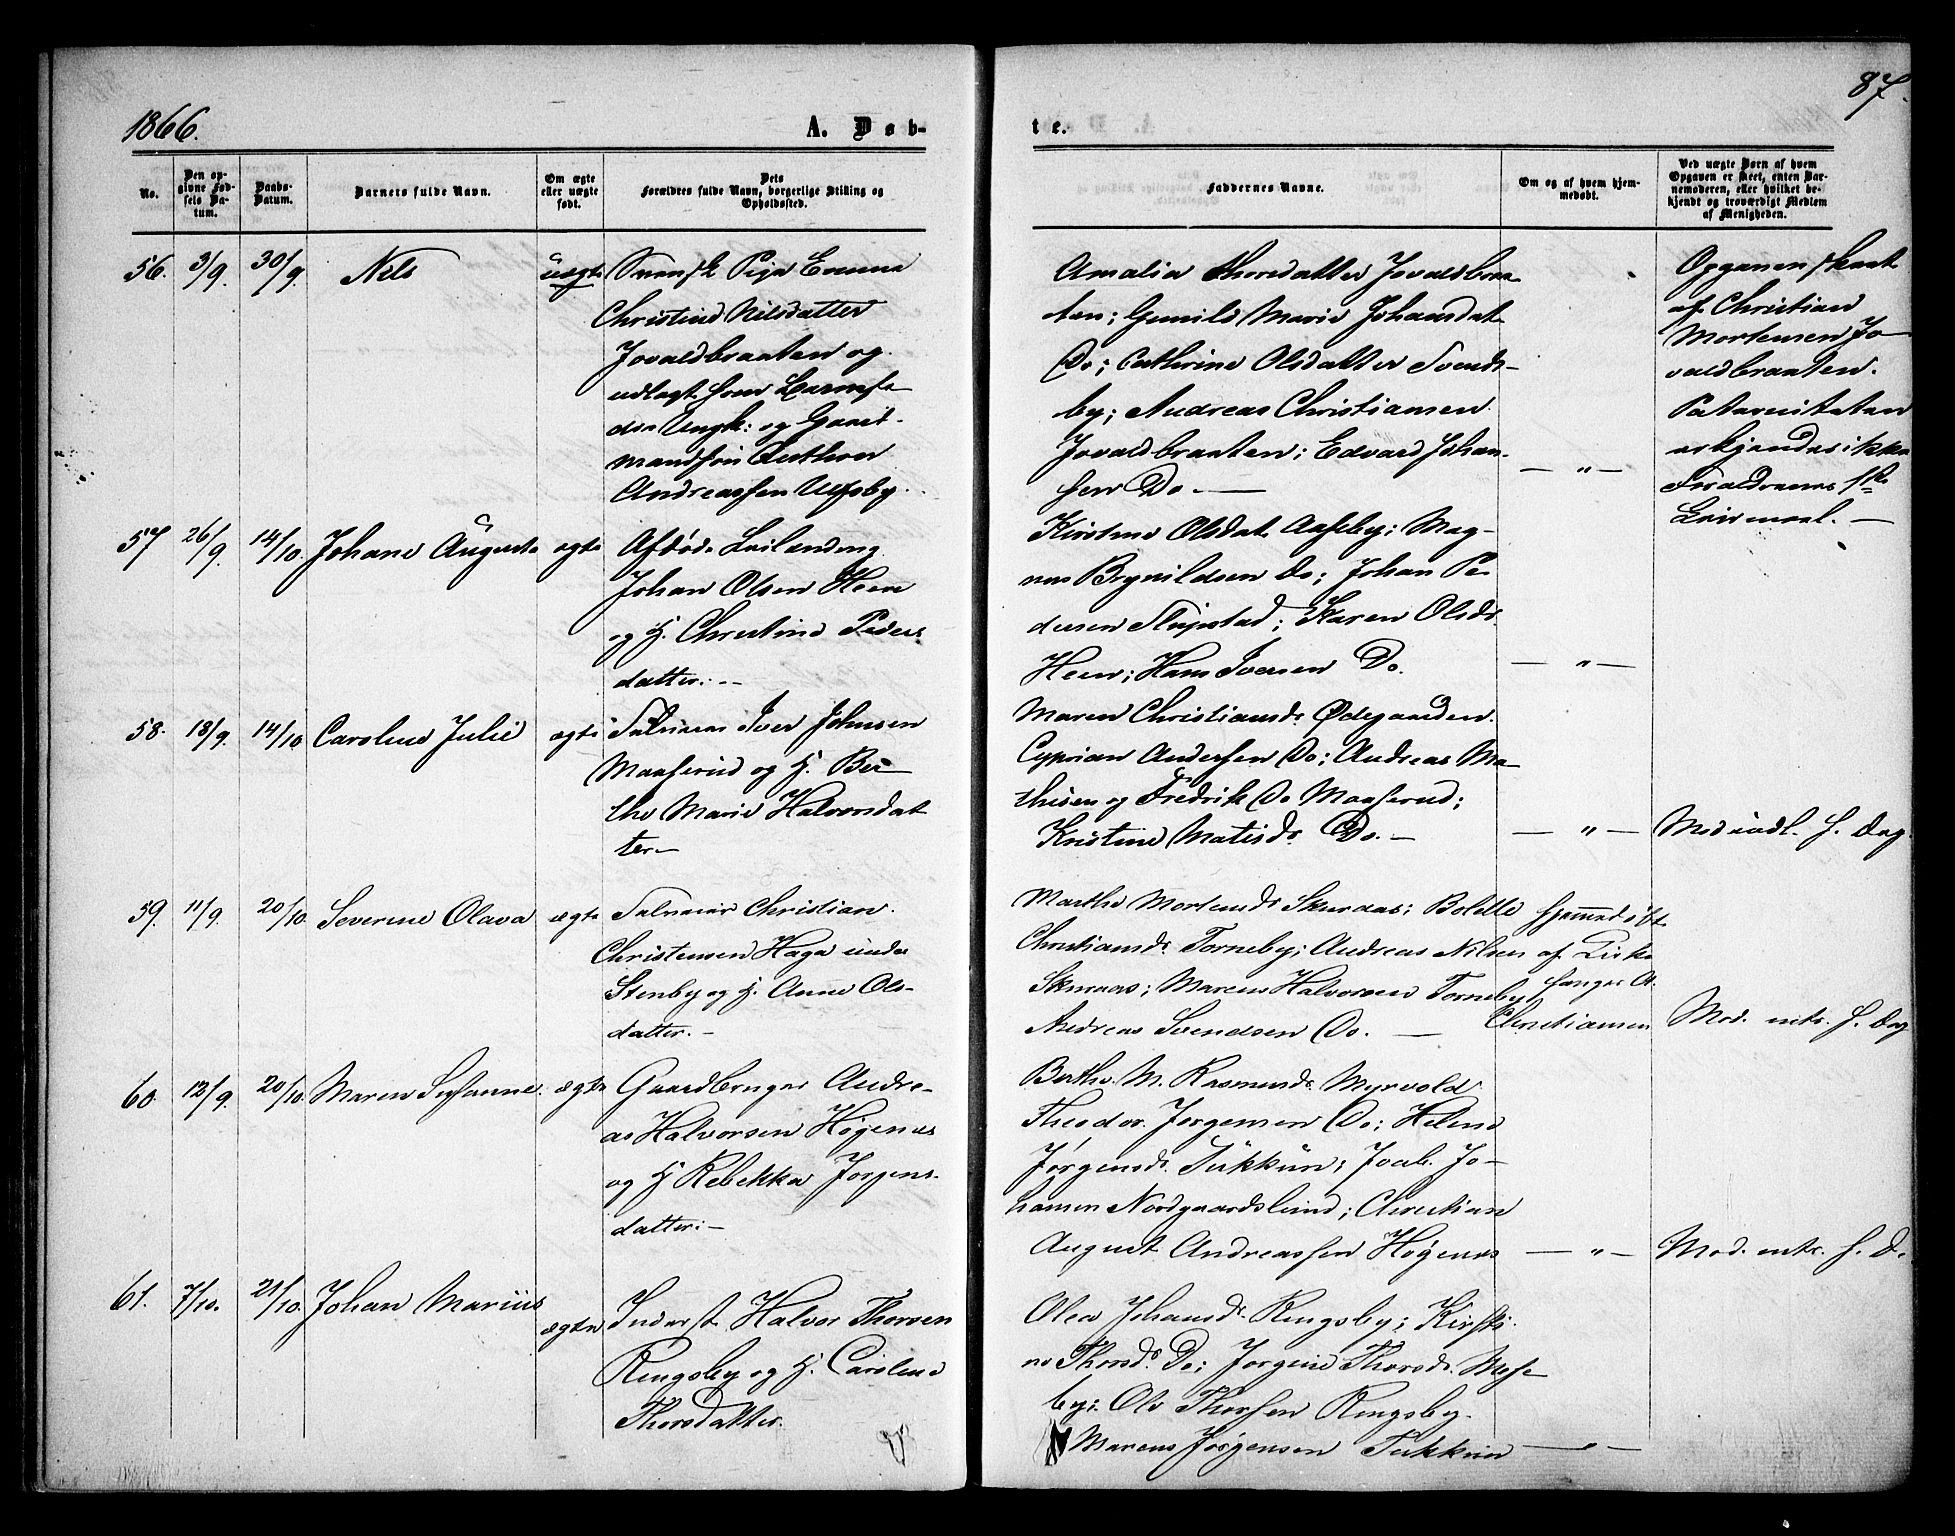 1866.
A. Døb-
te.
87.
No.
Den op-
givne Fød-
sels Da-
tum.
Daabs-
Datum.
Barnets fulde Navn.
Om ægte
eller uægte
født.
Dets
Forældres fulde Navn, borgerlige Stilling og
Opholdssted.
Faddernes Navne.
Om og af hvem hjem-
medøbt.
Ved uægte Børn af hvem
Opgaven er skeet, enten Bar-
nemoderen, eller hvilket be-
kjendt og troværdigt Medlem
af Menigheden.
56. 3/9. 30/9. Nils uægte Svensk Pige Emma
Christine Nilsdatter
Jovaldbraaten og
udlagt som Barnefa
der Ungk: og Gaard-
mandsøn Anthon
Andreassen Ulfsby.
Amalia Thorsdatter Jovaldbraa-
ten; Gunild Marie Johansdat
Do; Cathrine Olsdatter Svends-
by; Andreas Christiansen
Jovaldbraaten; Edvard Johan-
sen Do. — — " —
Opgaven skeet
af Christian
Mortensen Jo-
valdbraaten.
Paterniteten
erkjendes ikke
Forældrenes 1ste
Leiermaal. —
57. 26/9. 14/10. Johane Auguste ægte Afdøde Leilænding
Johan Olsen Heen
og H. Christine Peders
datter. --
Kirstine Olsdat Aaseby; Mag-
nus Brynildsen Do; Johan Pe-
dersen Slupstad; Karen Olsdr.
Heen; Hans Iversen Do. — " —
58. 18/9. 14/10 Caroline Julie ægte Selveier Iver Johnsen
Maaserud og H. Ber-
the Marie Halvorsdat
ter —
Maren Christiansdr. Ødegaarden.
Cyprian Andersen Do; Andreas Ma-
thisen og Fredrik Do Maaserud;
Kristine Matisdr. Do. — — " — Mod. indl. s. Dag.
59. 11/9. 20/10. Severine Olava ægte Selveier Christian
Christensen Haga under
Stenby og H. Anne Ols-
datter. —
Marthe Mortensdr Skurnas; Bolette
Christiansdr. Torneby; Andreas Nilsen
Skurnas; Marcus Halvorsen Torneby
Andreas Svendsen Do. —
Hjemmedøbt
af Kirke
sanger A.
Christiansen
Mod. intr. s. Dag
60. 12/9. 20/10. Maren Susanne. ægte Gaardbruger Andre-
as Halvorsen Høgenæs
og H Rebekka Jørgens-
datter: —
Berthe M. Rasmusdr. Myrvold
Theodor Jørgensen Do; Helene
Jørgensdr. Tukkun; Joab. Jo-
hansen Nordgaardslund; Christian
August Andreassen Høgenæs — " — Mod. intr. s. D.
61. 7/10. 21/10. Johan Marius ægte Inderst Halvor Thorsen
Ringsby og H. Caroline
Thorsdatter.
Olea Johansdr. Ringsby; Kirsti-
ne Thorsdr. Do; Jørgine Thorsdr. Mose-
by; Ole Thorsen Ringsby.
Marcus Jørgensen Tukkun — " —